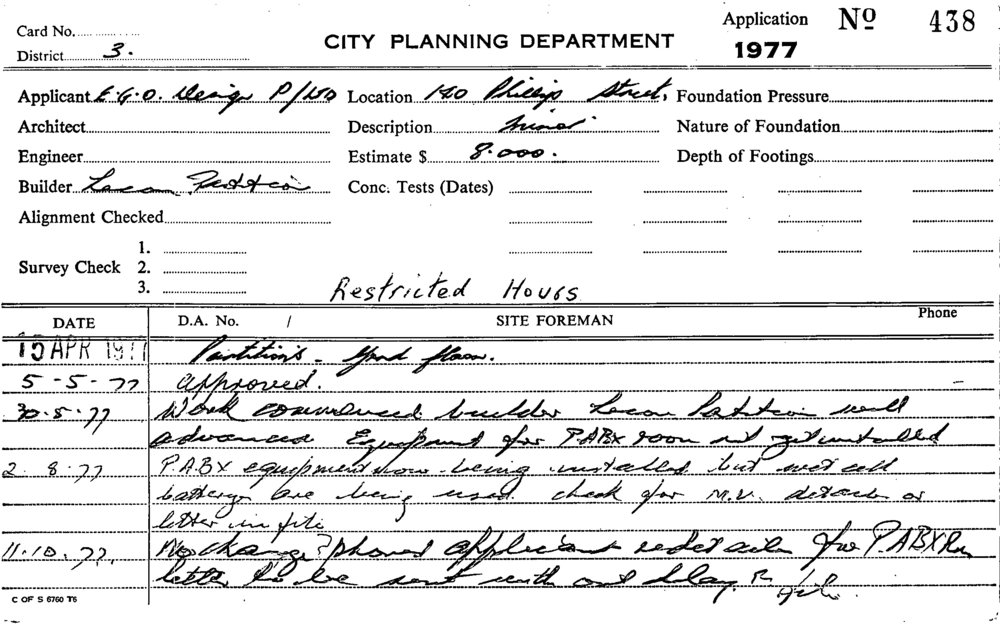 Card No.
District 3.
CITY PLANNING DEPARTMENT
Application No 438
1977
Applicant E.G.O. Design P/LTD Location 120 Phillip Street, Foundation Pressure
Architect Description Minor Nature of Foundation
Engineer Estimate $ 8.000. Depth of Footings
Builder Conc. Tests (Dates)
Alignment Checked
1.
Survey Check 2.
3.
Restricted Hours
DATE D.A. No. / SITE FOREMAN Phone
APR Partitions - Grnd floor.
5-5-77 approved.
30-5-77 Work commenced builder well
advanced Equipment for P.ABX room not yet installed
2.8.77 P.A.BX equipment now being installed but wet cell
battery are being used check for M.V. details or
letter in file
11.10.77. No change phoned applicant re details for P.ABX Rm
letter to be sent with out delay.
C OF S 6760 T6